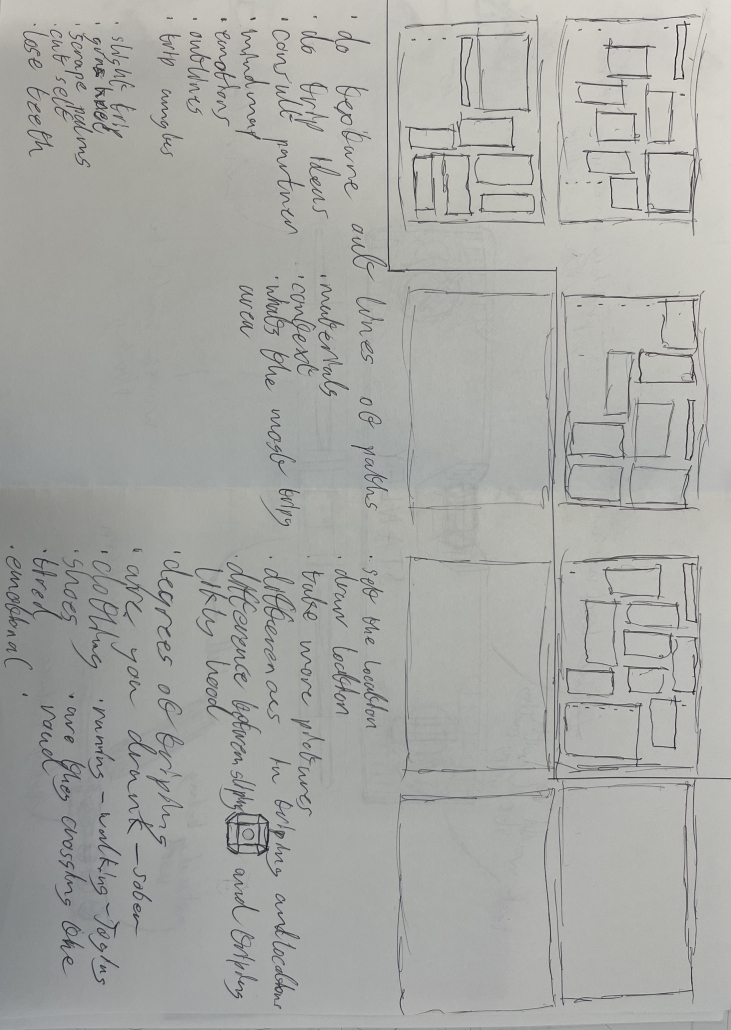 · do texture out lines of paths
· do trip ideas
· consult partner
· mindmap
· emotions
· outlines
· trip angles
· slight trip
· scrape palms
· cut self
· lose teeth
· materials
· context
· whats the most tripy
area
· got the location
· draw location
· take more pictures
· differences in triping and locations
· difference between sliping and triping
likly hood
· degrees of triping
· are you drunk - sober
· clothing · running - walking - Joging
· shoes · are they crossing the
road
· tired
· emotional